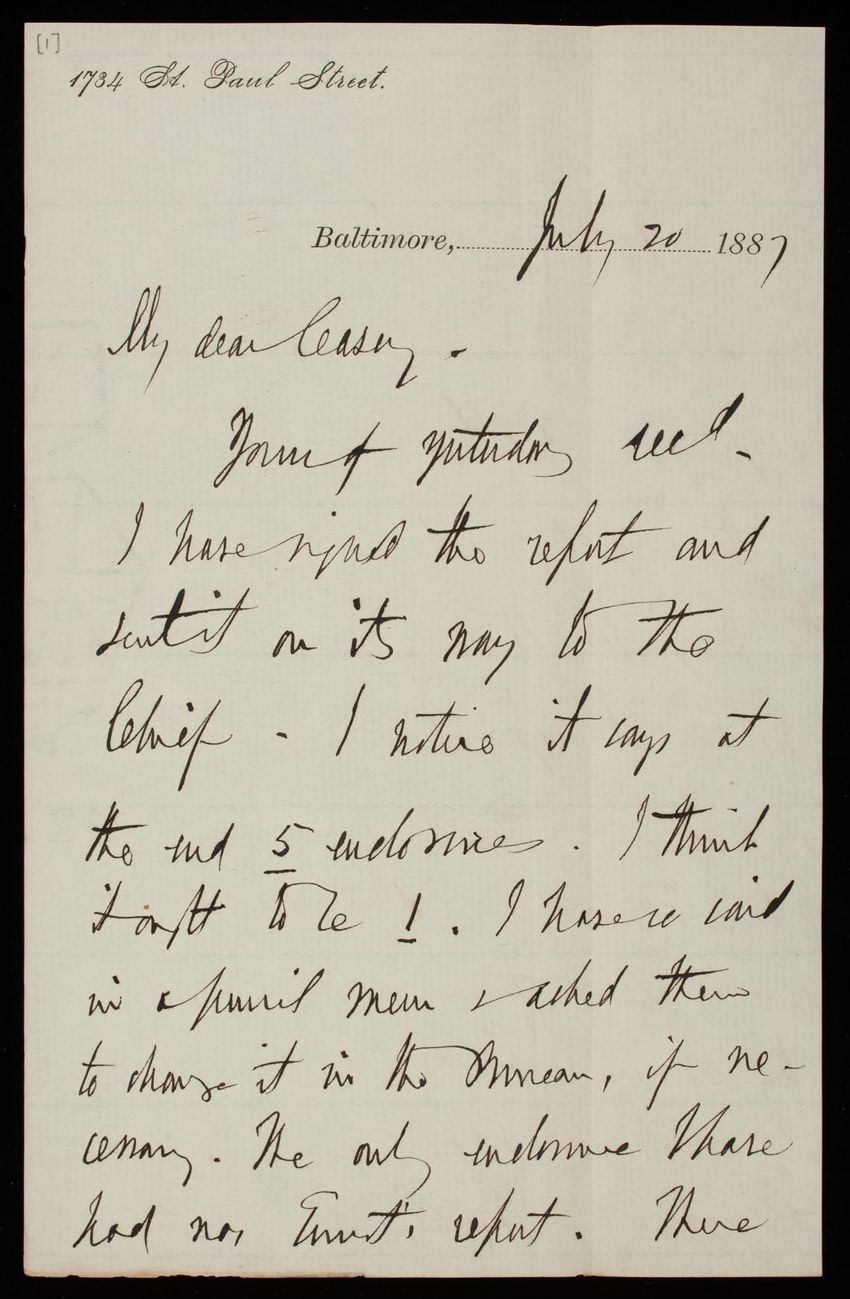 [1]
1734 St. Paul Street.
Baltimore, July 20 1887
My dear Casey -
Yours of yesterday recd -
I have signed the report and
sent it on its way to the
Chief - I notice it says at
the end 5 enclosures. I think
it ought to be 1. I have so said
in a pencil mem & asked them
to change it in the Bureau, if ne-
cessary. The only enclosure I have
had was report. There